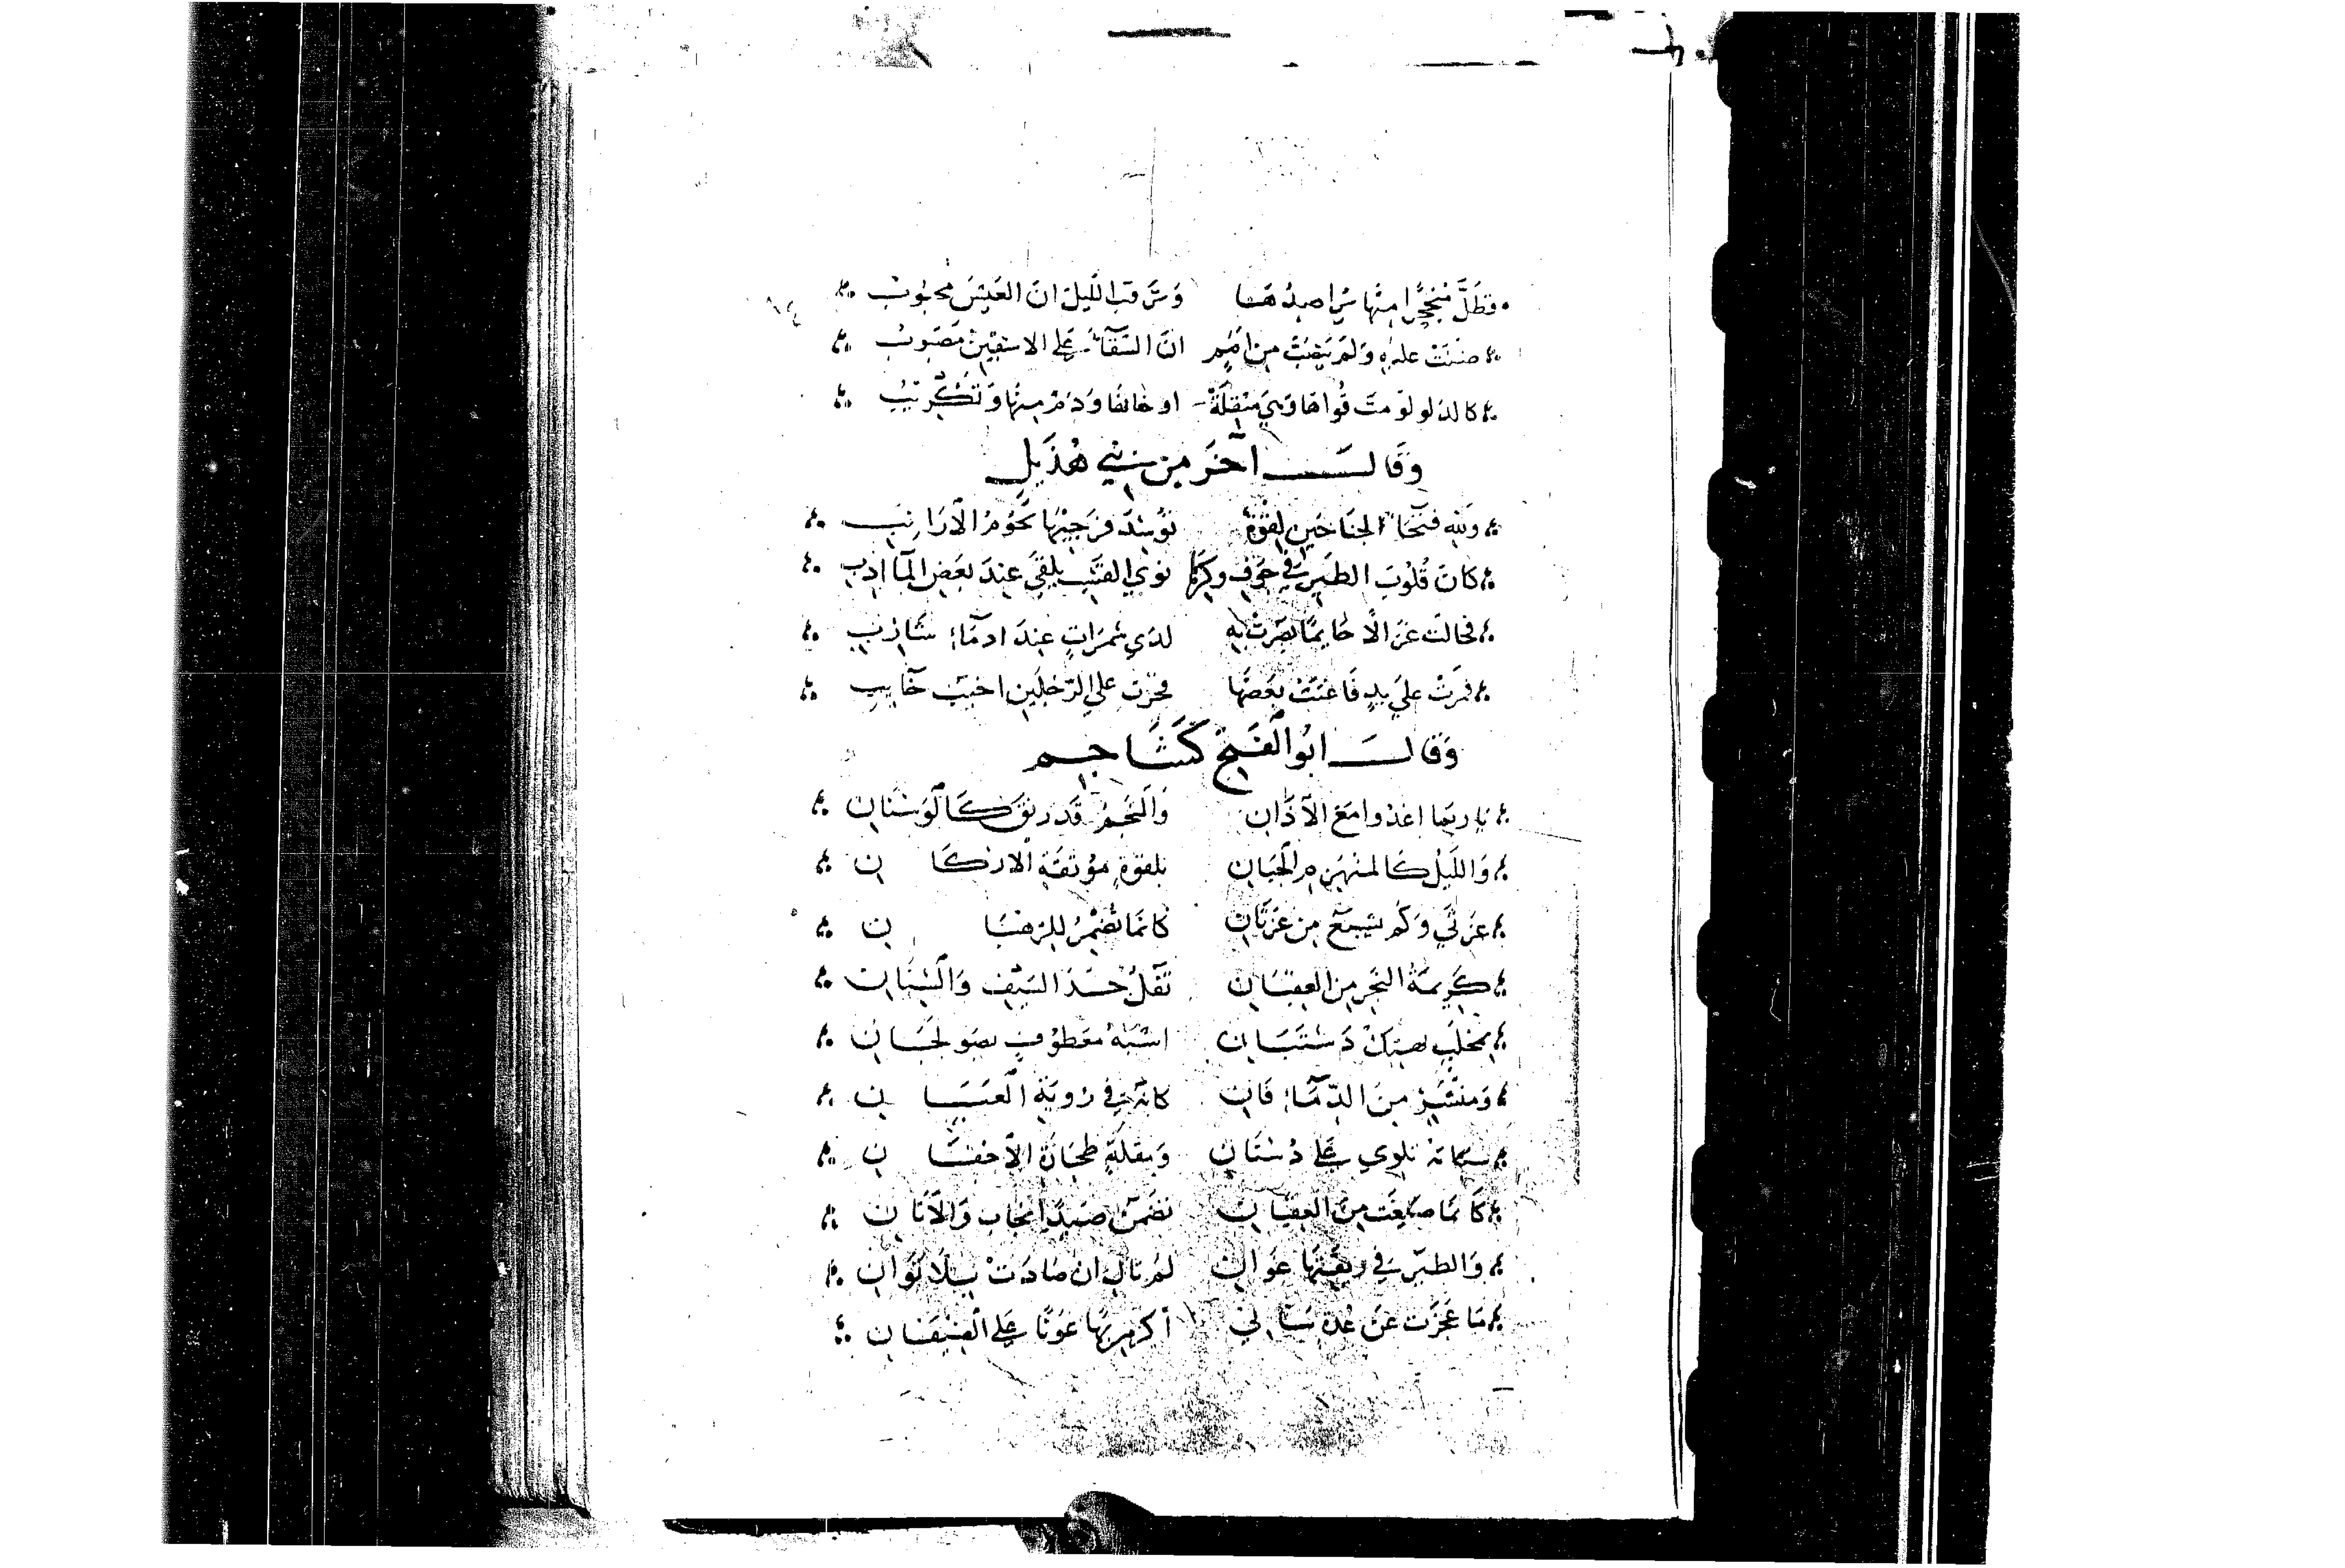 فظل منجحرا منها يراصدها ويرقب الليل ان العيش محبوب
صبت عليه ولم تنصب من امم ان الشقاء على الاشقين مصبوب
كالدلو
وقال آخر من بني هذيل
ولله فتخاء الجناحين لقوة توسد فرخيها لحوم الارانب
كان قلوب الطير في جوف وكرها نوى القسب يلقى عند بعض المآادب
فخالت غزالا جاثما بصرت به لدى سمرات عند ادماء سارب
فمرت على ريد فاعنت بعضها فخرت على الرجلين اخيب خايب
وقال ابو الفتح كشاجم
يا ربما اغدوا مع الآذان والنجم قد رنق كالوسنان
والليل كالمنهزم الجبان بلقوة موثقة الاركان
غرثى وكم تشبع من غرثان كانما تضمر للرهان
كريمة النجر من العقبان تفل حد السيف والسنان
بمخلب يهتك دستبان اشبه معطوف بصولجان
ومنسر من الدماء قان كانه في رؤية العيان
تلوى على دستان وبمقلة الاجفان
كانما صيغت من العقيان تضمن صيد الجاب والاتان
والطير في ربقتها عوان لم تال ان صادت بلا توان
ما عجزت عن اكرم بها عونا على الضيفان